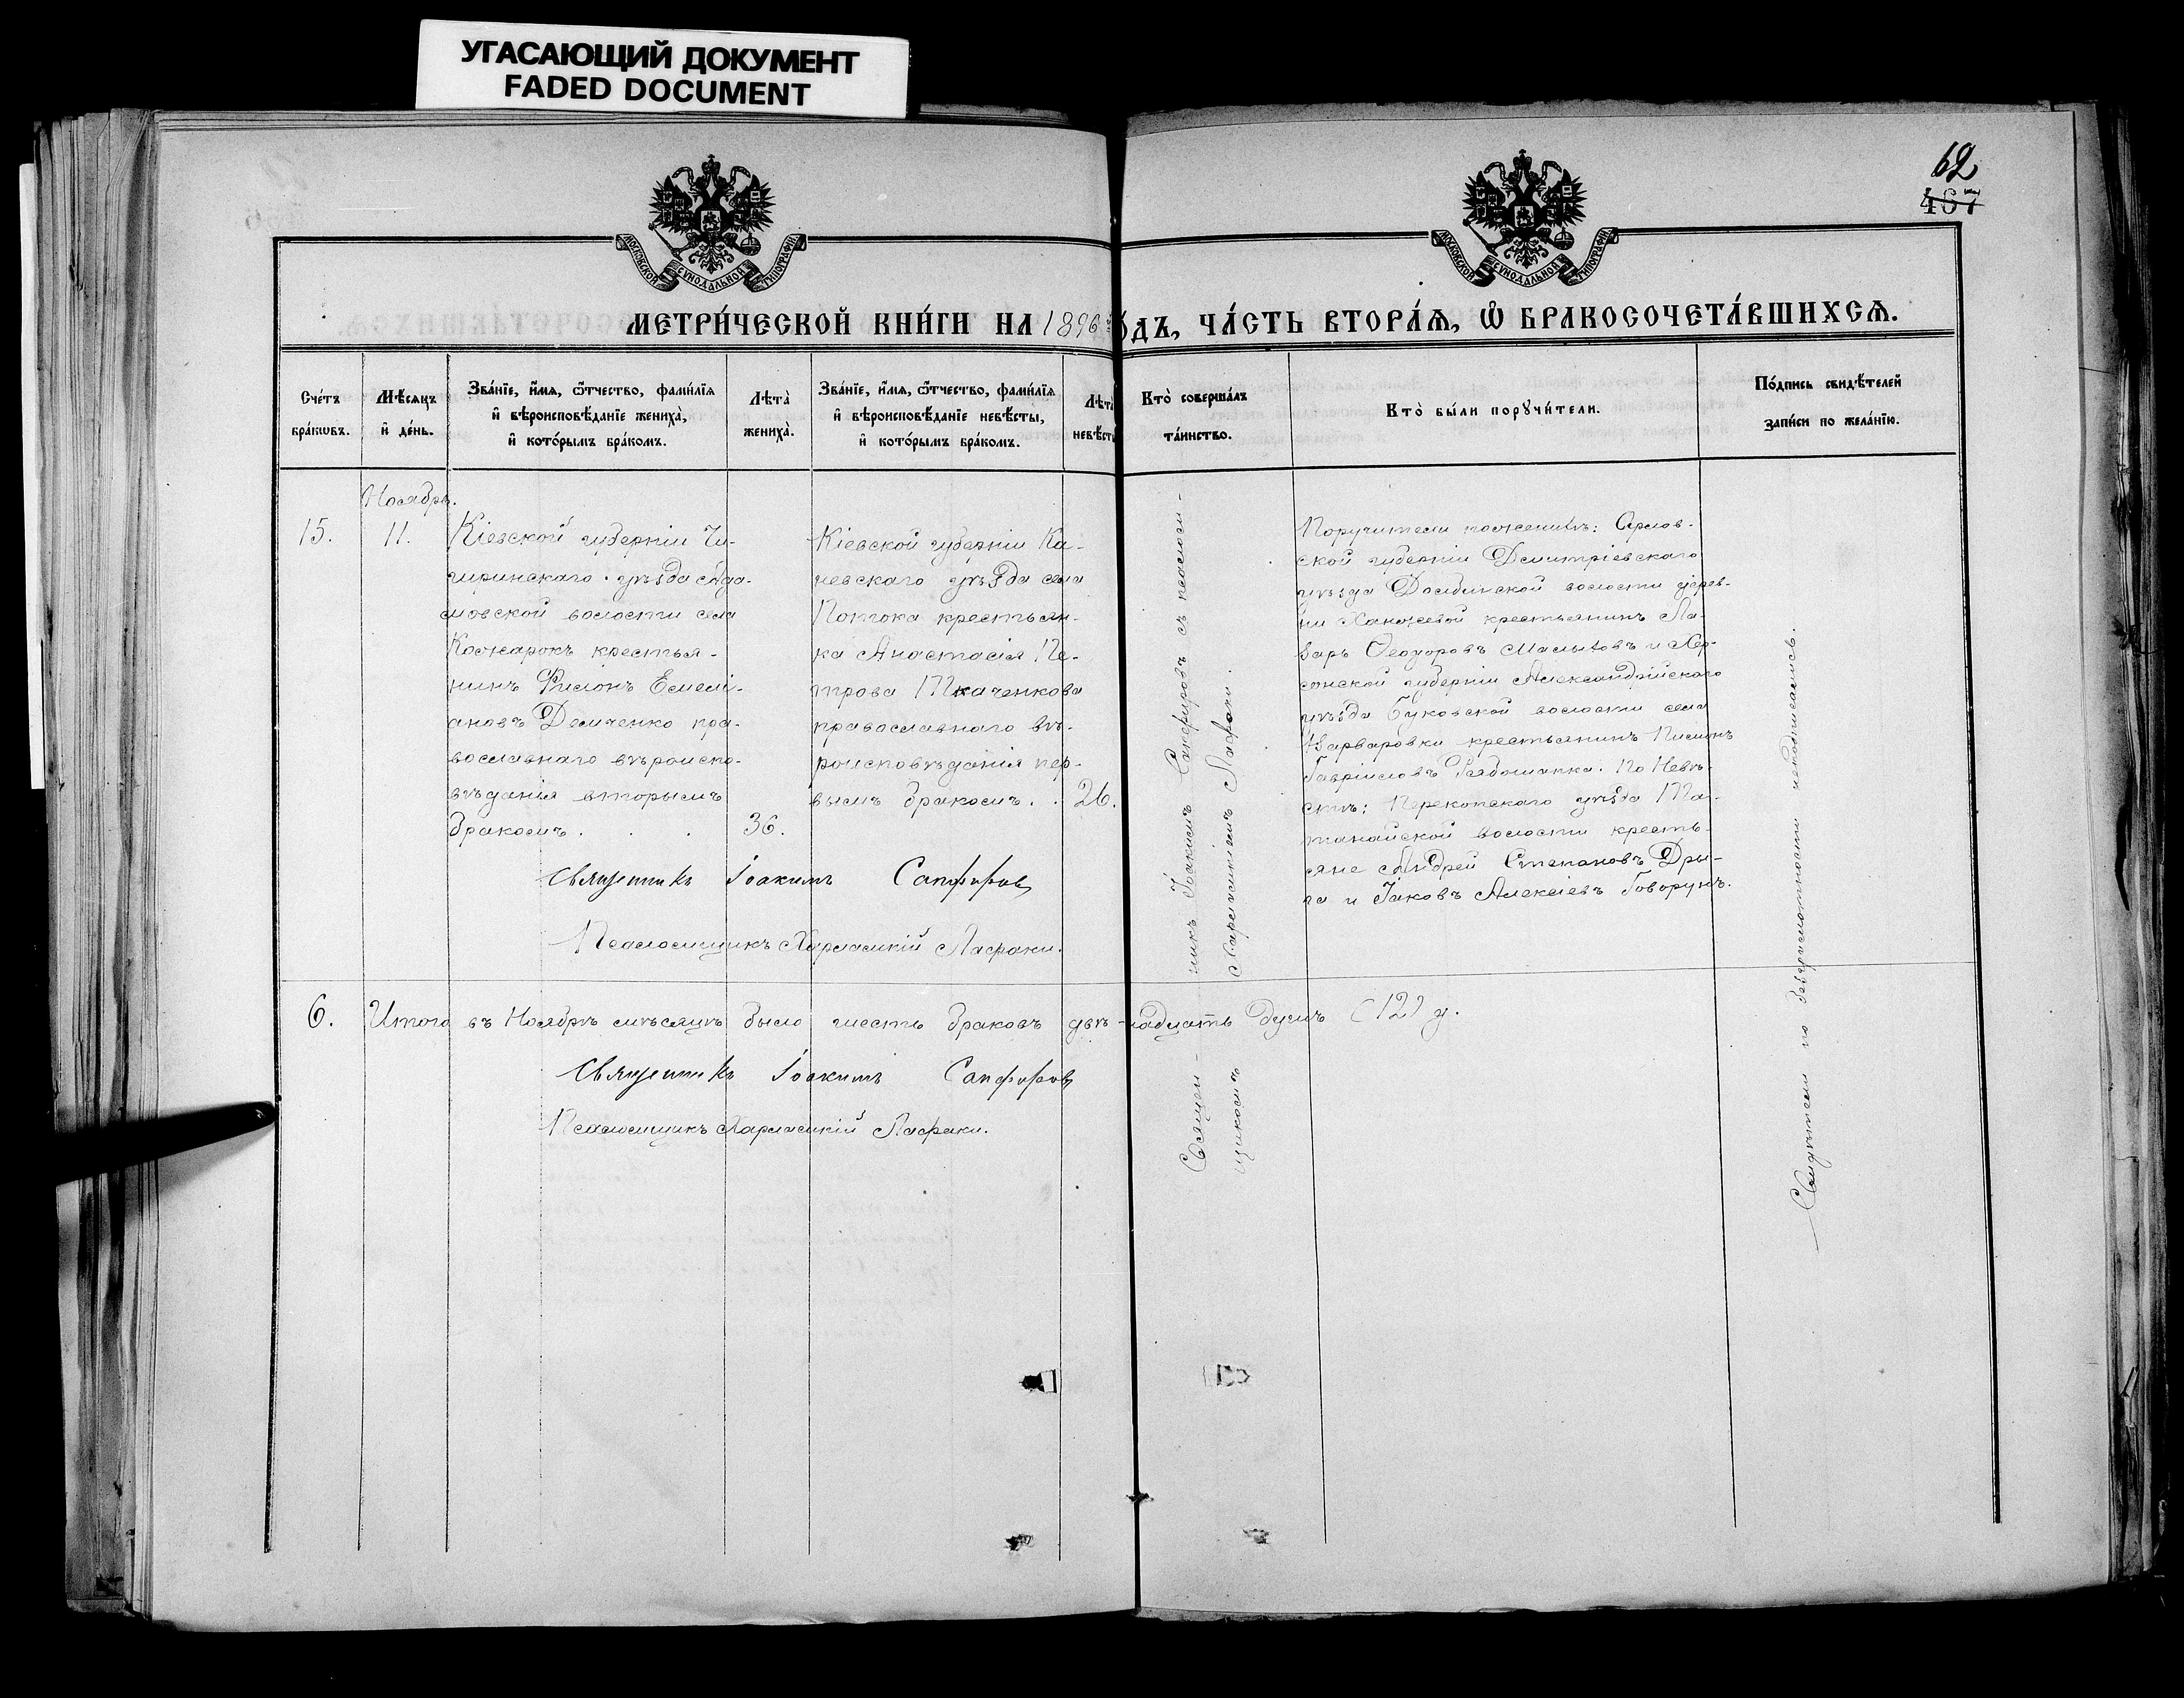 УГАСАЮЩИЙ ДОКУМЕНТ
FADED DOCUMENT
62
467
МОСКОВСКОЙ СѴНОДАЛЬНОЙ ТИПОГРАФІИ
МОСКОВСКОЙ СѴНОДАЛЬНОЙ ТИПОГРАФІИ
МЕТРИ́ЧЕСКОЙ КНИ́ГИ НА 1896 го́дъ, ЧА́СТЬ ВТОРА́Ѧ, Ѽ БРАКОСОЧЕТА́ВШИХСѦ.
Сче́тъ бра́кѡвъ.
Мѣ́сяцъ и҆ де́нь.
Зва́нїе, и҆́мѧ, ѻ҆́тчество, фами́лїѧ
и҆ вѣроисповѣ́данїе жениха̀,
и҆ кото́рымъ бра́комъ.
Лѣта̀ жениха̀.
Зва́нїе, и҆́мѧ, ѻ҆́тчество, фами́лїѧ
и҆ вѣроисповѣ́данїе невѣ́сты,
и҆ кото́рымъ бра́комъ.
Лѣта̀ невѣ́сты
Кто̀ соверша́лъ
та́инство.
Кто̀ бы́ли порꙋчи́тели.
По́дпись свидѣ́телей
за́писи по жела́нїю.
Ноябрь.
15.
11.
Кіевской губерніи Чи-
гиринскаго уѣзда Ада-
мовской волости села
Косарокъ крестья-
нинъ Филонъ Емелі-
ановъ Демченко пра-
вославнаго вѣроиспо-
вѣданія вторымъ
бракомъ . . .
36.
Кіевской губерніи Ка-
невскаго уѣзда села
Потока крестьян-
ка Анастасія Пе-
трова Ткаченкова
православнаго вѣ-
роисповѣданія пер-
вымъ бракомъ. .
26.
Священникъ Іоакимъ Сапфировъ съ псалом-
щикомъ Харлампіемъ Лафаки.
Поручители по женихѣ: Орлов-
ской губерніи Димитріевскаго
уѣзда Долбинской волости дерев-
ни крестьянинъ Ла-
зарь Ѳеодоровъ и Хер-
сонской губерніи Александрійскаго
уѣзда Буковской волости села
Варваровки крестьянинъ Пимонъ
Гавріиловъ Рябошапка. По Невѣ-
стѣ: Перекопскаго уѣзда Та-
танайской волости кресть-
яне Андрей Степановъ Дры-
га и Іаковъ Алексіевъ Говорунъ.
Свидѣтели по безграмотности неподписались.
Священникъ Іоакимъ Сапфировъ
Псаломщикъ Харлампій Лафаки.
6. Итого въ Ноябрѣ мѣсяцѣ было шесть браковъ двѣ-надцать душъ (12) д.
Священникъ Іоакимъ Сапфировъ
Псаломщикъ Харлампій Лафаки.